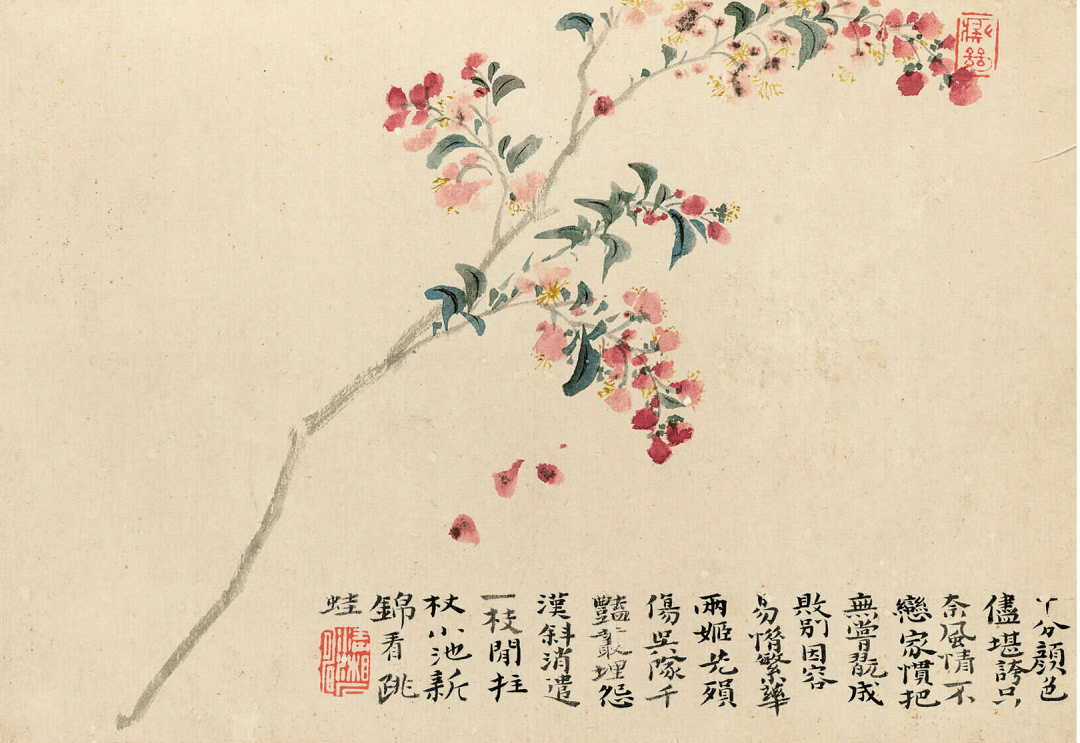 分顏色
儘堪誇只
奈風情不
戀家慣把
無嘗翫成
敗別因容
易惜繁華
兩姬先殞
傷吳隊千
豔叢埋怨
漢斜消遣
一枝閒拄
杖小池新
錦看跳
蛙